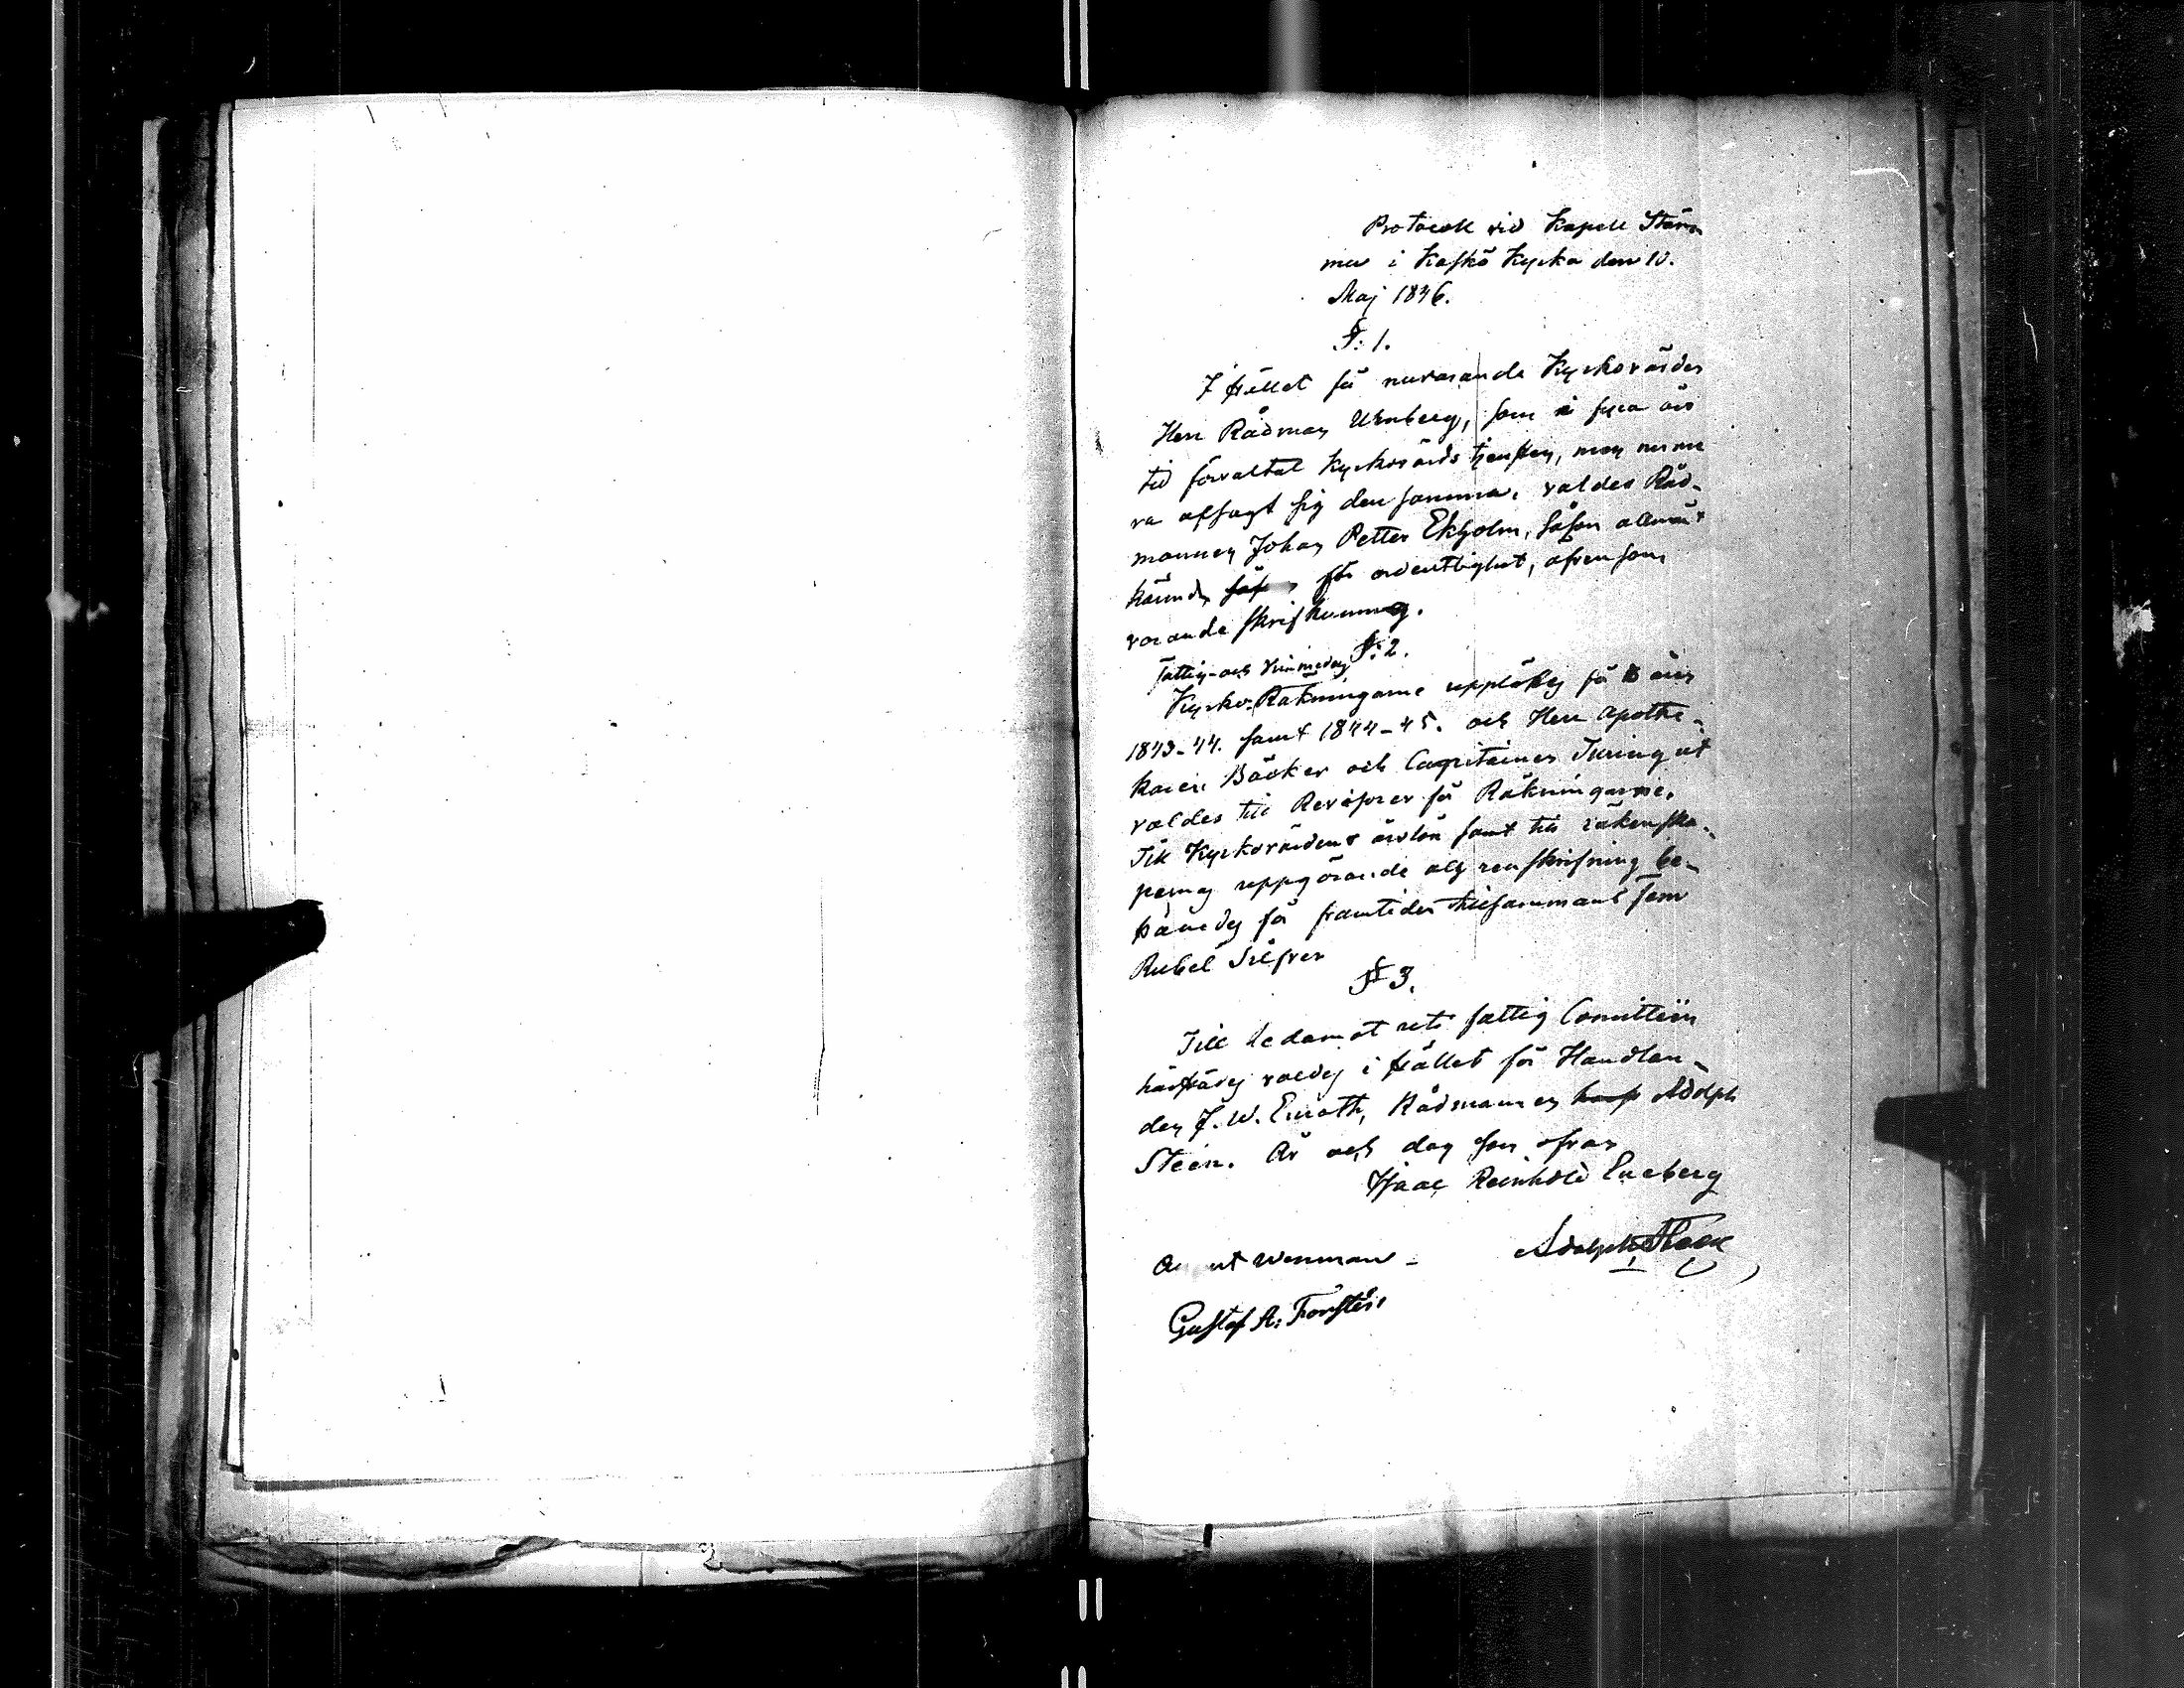 Protocoll vid Kapell Stäm
ma i Kaskö Kyrka den 10.
Maj 1846.
§: 1.
I stället för nuvarande Kyrkovärden
Herr Rådman Unberg, som i fyra års
tid förvaltat Kyrkovärds tjensten, men nume
ra afsagt sig densamma, valdes Råd-
mannen Johan Petter Ekholm, såsom allmänt
känd för ordentlighet, äfvensom
varande skrifkunnig.
§: 2.
fattig- och
Kyrko-Räkningarne upplästes för åren
1843-44. samt 1844-45. och Herr Apothe-
karen Bäcker och Capitainen Thuring ut
valdes till Revisorer för Räkningarne.
Till Kyrkovärdens årslön samt till räkenska-
pernas uppgörande och renskrifning be-
stämdes för framtiden tillsammans fem
Rubel Silfver
§ 3.
Till ledamot uti fattig Comitteen
härstädes valdes i stället för Handlan-
den J. W. Enroth, Rådmannen Adolph
Steen. År och dag som ofvan
Isaac Reinhold Eneberg
Adolph Steen
Wenman
Gustaf A: Forstén